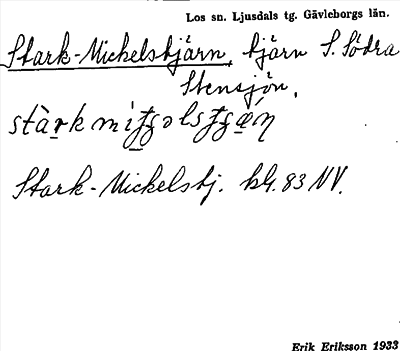 Los sn. Ljusdals tg. Gävleborgs län.
Stark-Mickelstjärn, tjärn S. Södra
Stensjön.
Stark-Mickelstj. bl. 83 NV.
Erik Eriksson 1933